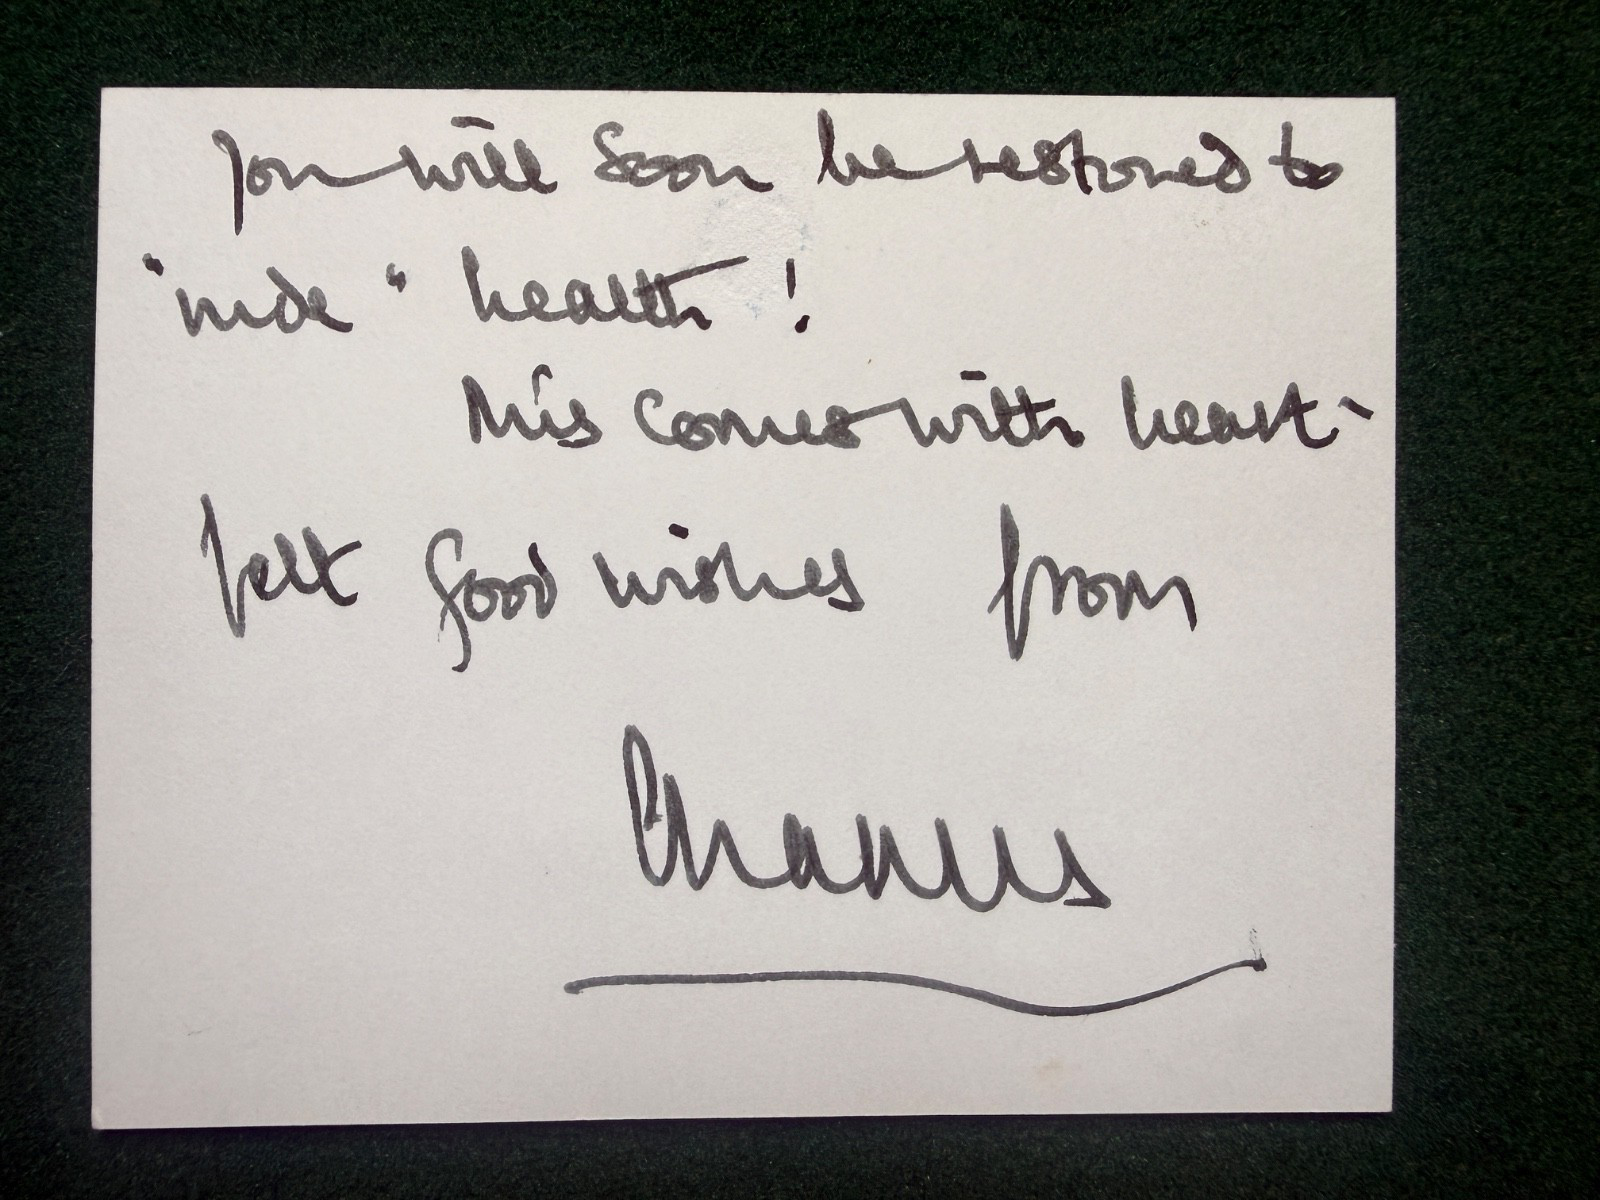 you will soon be restored to
"rude" health!
This comes with heart-
felt good wishes from
Charles